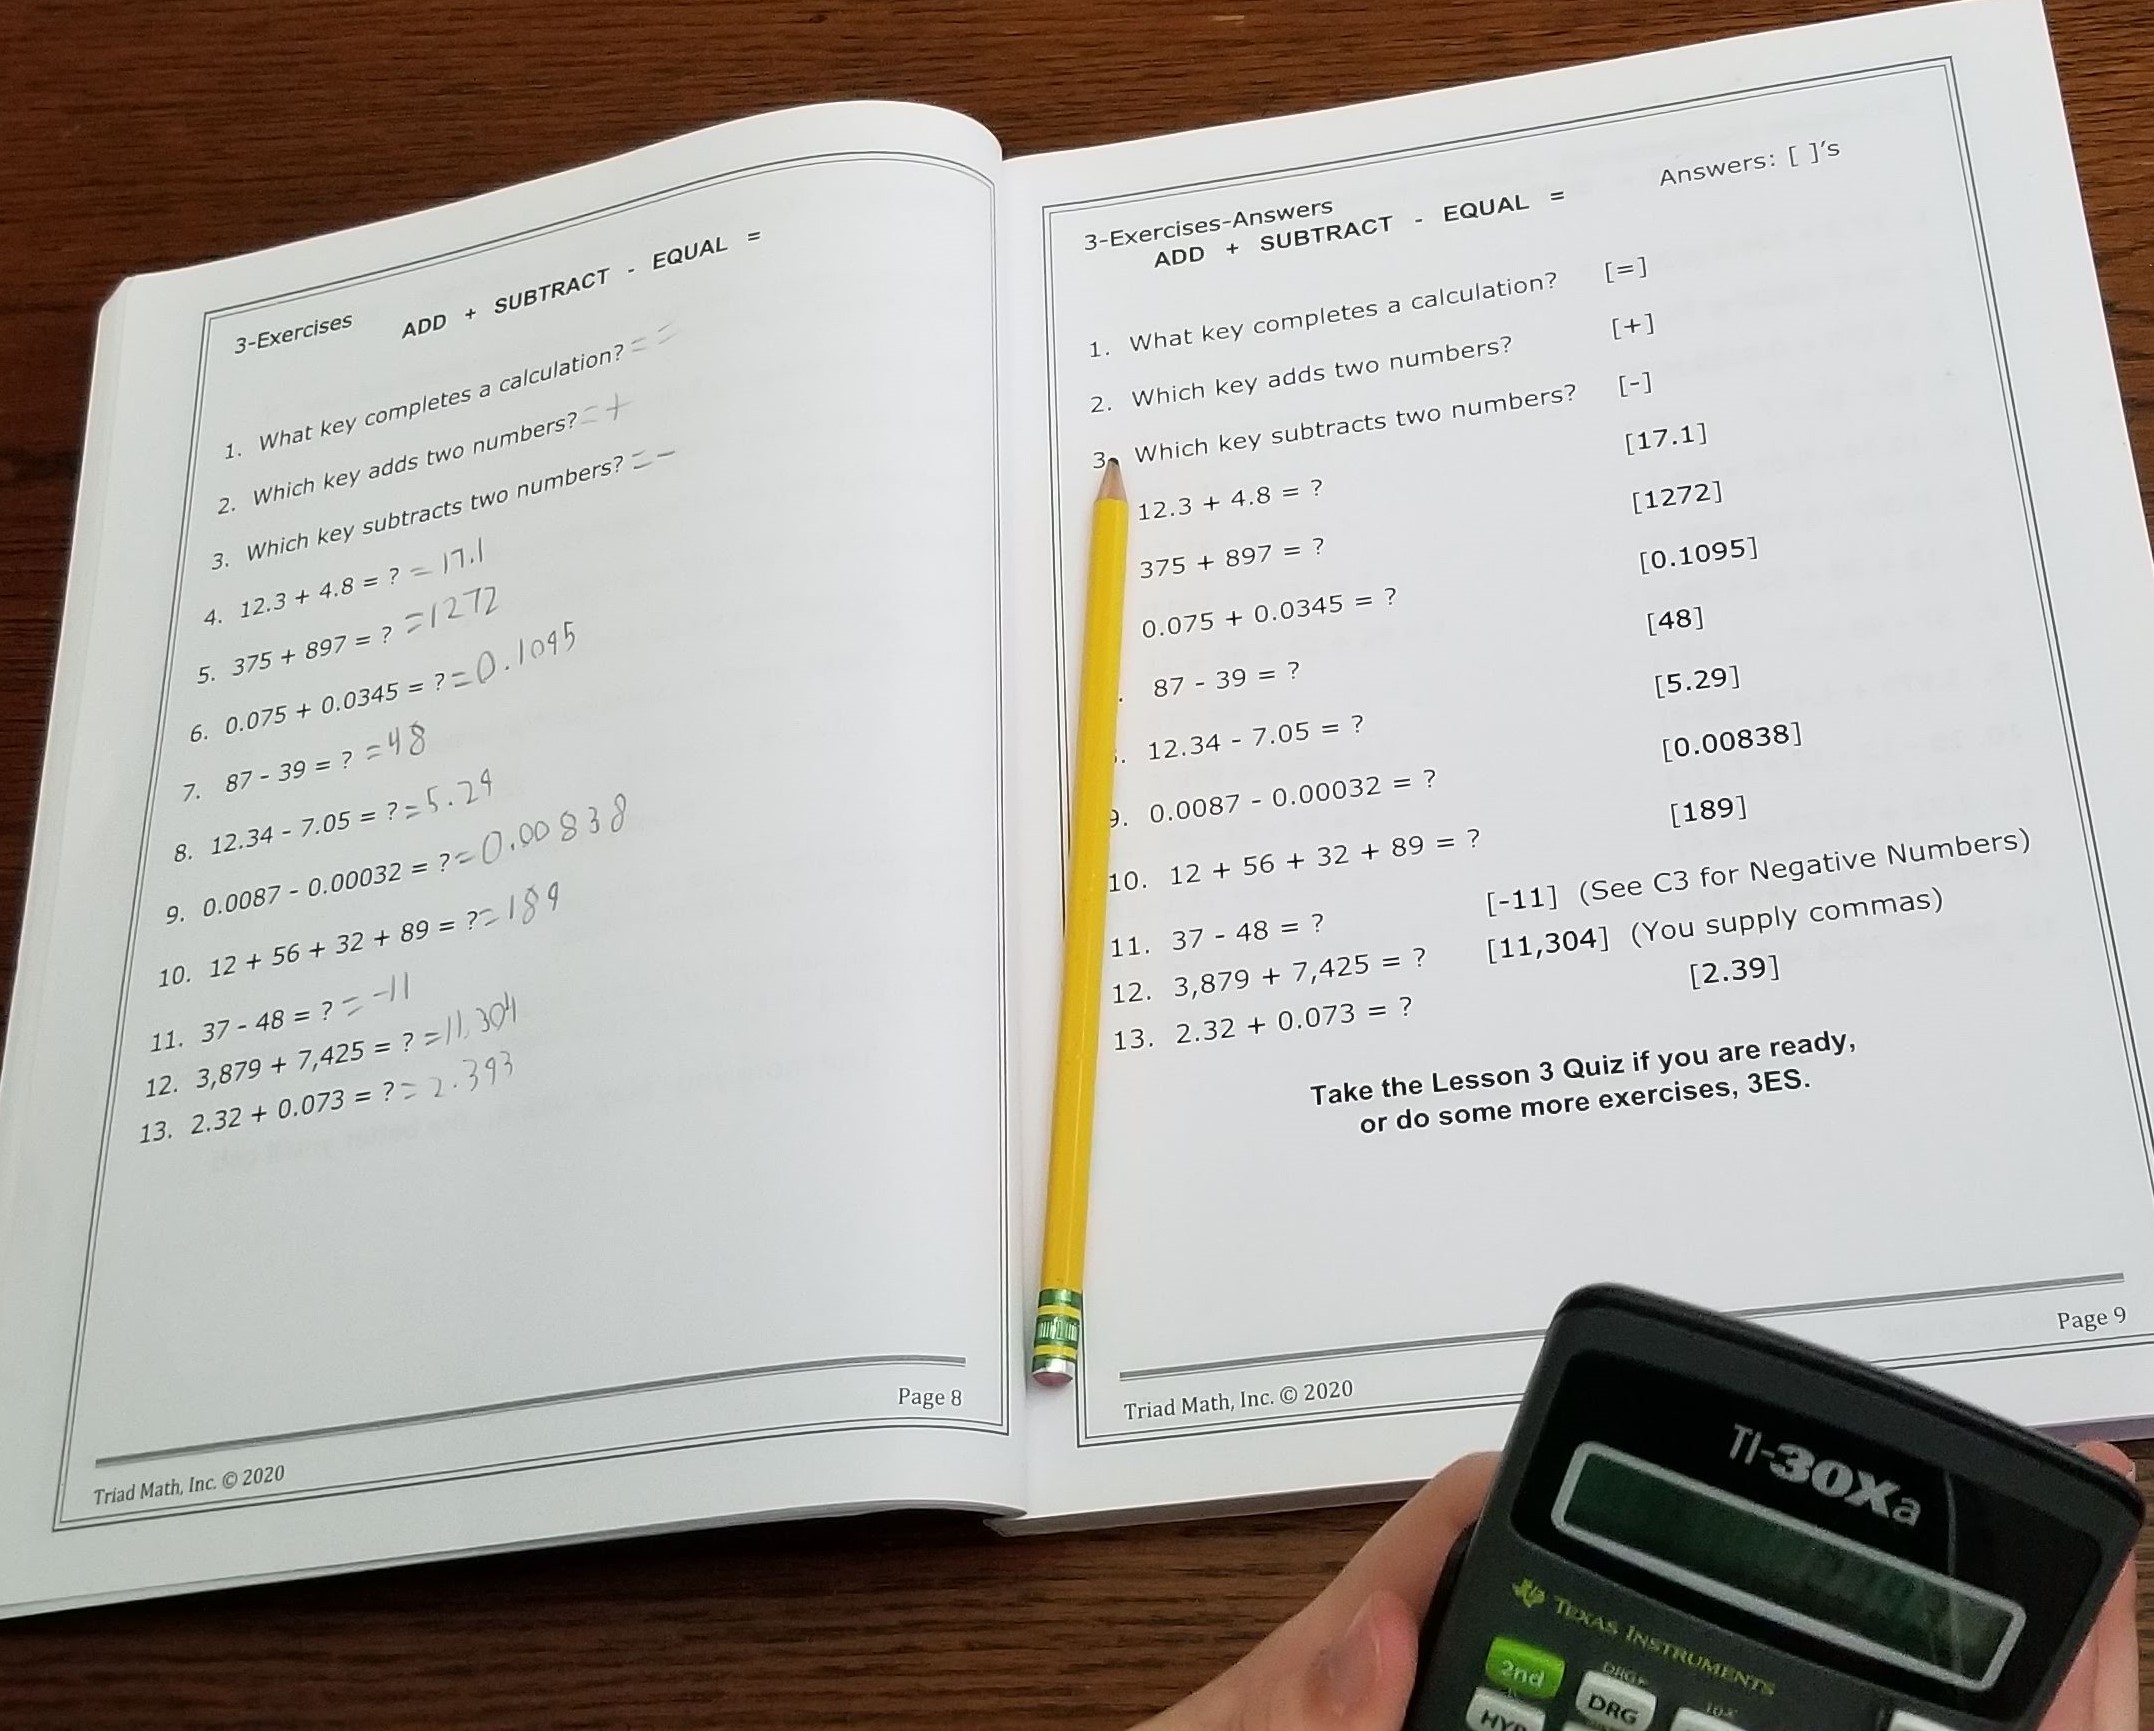 3-Exercises
ADD + SUBTRACT - EQUAL =
1. What key completes a calculation? = =
2. Which key adds two numbers? = +
3. Which key subtracts two numbers? = -
4. 12.3 + 4.8 = ? = 17.1
5. 375 + 897 = ? = 1272
6. 0.075 + 0.0345 = ? = 0.1095
7. 87 - 39 = ? = 48
8. 12.34 - 7.05 = ? = 5.29
9. 0.0087 - 0.00032 = ? = 0.00838
10. 12 + 56 + 32 + 89 = ? = 189
11. 37 - 48 = ? = -11
12. 3,879 + 7,425 = ? = 11,304
13. 2.32 + 0.073 = ? = 2.393
Page 8
Triad Math, Inc. © 2020
3-Exercises-Answers
Answers: [ ]'s
ADD + SUBTRACT - EQUAL =
1. What key completes a calculation? [=]
2. Which key adds two numbers? [+]
3. Which key subtracts two numbers? [-]
12.3 + 4.8 = ? [17.1]
375 + 897 = ? [1272]
0.075 + 0.0345 = ? [0.1095]
87 - 39 = ? [48]
12.34 - 7.05 = ? [5.29]
9. 0.0087 - 0.00032 = ? [0.00838]
10. 12 + 56 + 32 + 89 = ? [189]
11. 37 - 48 = ? [-11] (See C3 for Negative Numbers)
12. 3,879 + 7,425 = ? [11,304] (You supply commas)
13. 2.32 + 0.073 = ? [2.39]
Take the Lesson 3 Quiz if you are ready,
or do some more exercises, 3ES.
Page 9
Triad Math, Inc. © 2020
TI-30Xa
TEXAS INSTRUMENTS
2nd
DRG
DRG
HYP